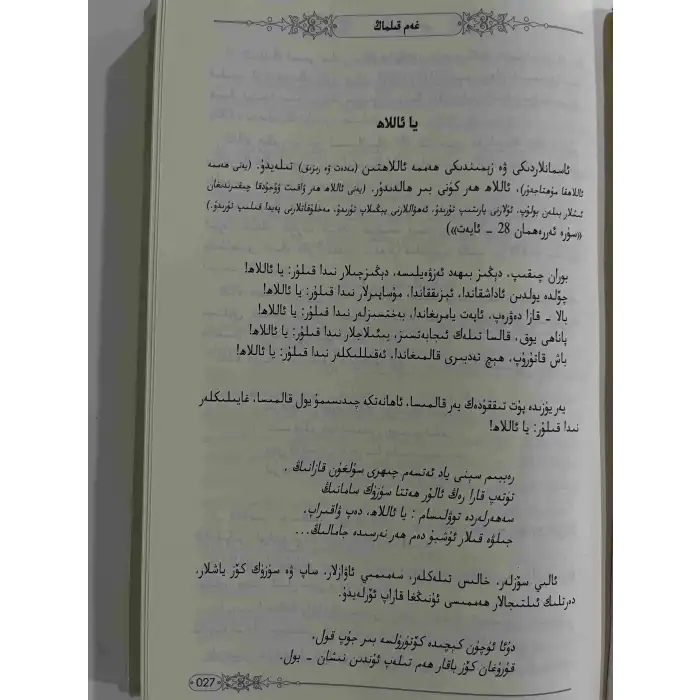 غەم قىلماڭ
يا ئاللاھ
ئاسمانلاردىكى ۋە زېمىندىكى ھەممە ئاللاھتىن (مەدەت ۋە رىزىق) تىلەيدۇ. (يەنى ھەممە
ئاللاھقا مۇھتاجدۇر)، ئاللاھ ھەر كۈنى بىر ھالدىدۇر. (يەنى ئاللاھ ھەر ۋاقىت ۋۇجۇدقا چىقىرىدىغان
ئىشلار بىلەن بولۇپ، ئۇلارنى يارىتىپ تۇرىدۇ، ئەھۋاللارنى يېڭىلاپ تۇرىدۇ، مەخلۇقاتلارنى پەيدا قىلىپ تۇرىدۇ.)
«سۈرە ئەررەھمان 28 - ئايەت»)
بوران چىقىپ، دېڭىز بىھەد ئەزۋەيلىسە، دېڭىزچىلار نىدا قىلۇر: يا ئاللاھ!
چۆلدە يولدىن ئاداشقاندا، ئېزىققاندا، مۇساپىرلار نىدا قىلۇر: يا ئاللاھ!
بالا - قازا دەۋرەپ، ئاپەت يامرىغاندا، بەختسىزلەر نىدا قىلۇر: يا ئاللاھ!
پاناھى يوق، قالسا تىلەك ئىجابەتسىز، بىئىلاجلار نىدا قىلۇر: يا ئاللاھ!
باش قاتۇرۇپ، ھېچ تەدبىرى قالمىغاندا، ئەقىللىكلەر نىدا قىلۇر: يا ئاللاھ!
يەر يۈزىدە پۇت تىققۇدەك يەر قالمىسا، ئاھانەتكە چىدىسىمۇ يول قالمىسا، غايىلىكلەر
نىدا قىلۇر: يا ئاللاھ!
رەببىم سېنى ياد ئەتسەم چىھرى سۇلغۇن قازانىڭ .
تۈتەپ قارا رەڭ ئالۇر ھەتتا سۈزۈك سامانىڭ
سەھەرلەردە توۋلىسام : يا ئاللاھ، دەپ ۋاقىراپ،
جىلۋە قىلار ئۇشبۇ دەم ھەر نەرسىدە جامالىڭ...
ئالىي سۆزلەر، خالىس تىلەكلەر، سەمىمىي ئاۋازلار، ساپ ۋە سۈزۈك كۆز ياشلار،
دەرتلىك ئىلتىجالار ھەممىسى ئۇنىڭغا قاراپ ئۆرلەيدۇ.
دۇئا ئۈچۈن كېچىدە كۆتۈرۈلسە بىر جۈپ قول،
قۇرۇغان كۆز باقار ھەم تىلەپ ئۇندىن نىشان - يول.
027